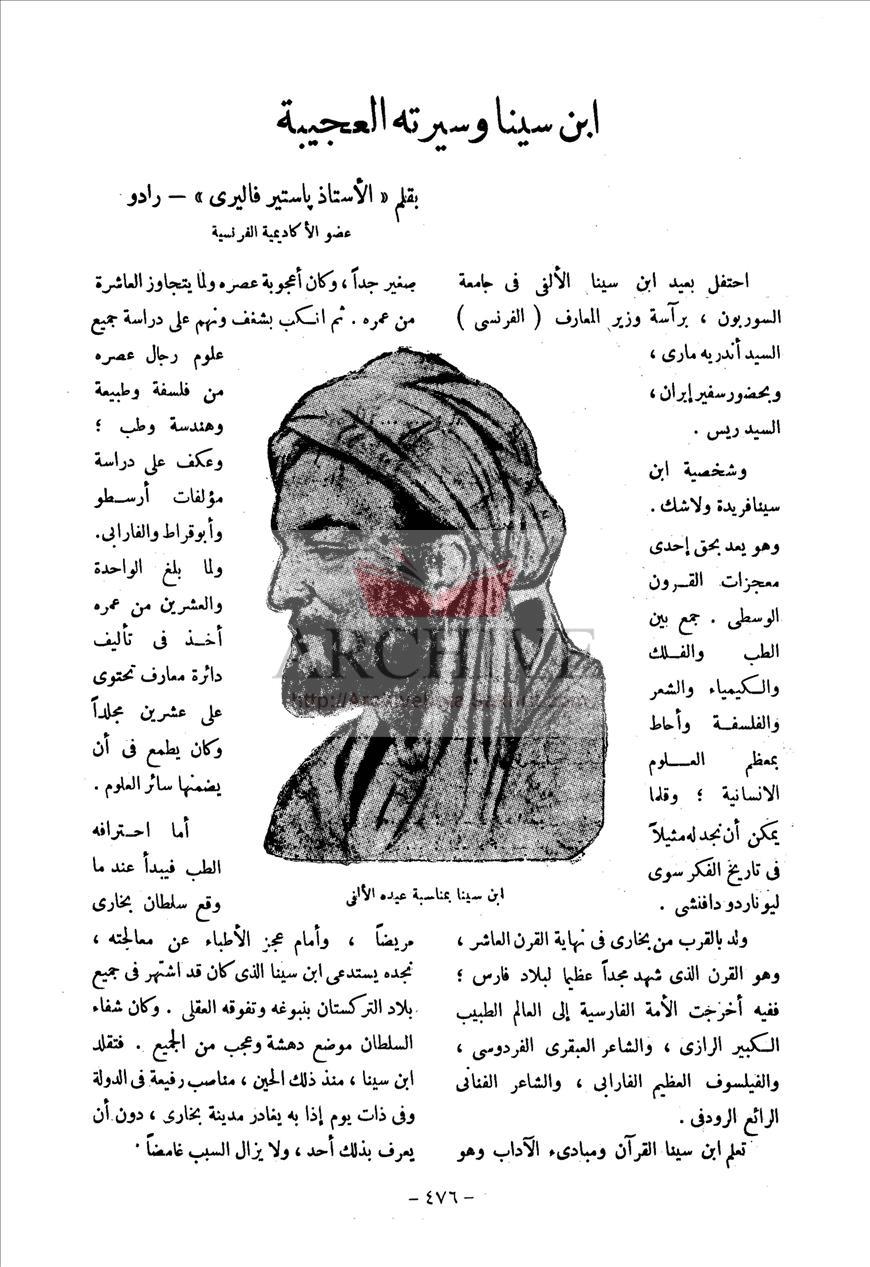 ابن سينا وسيرته العجيبة
بقلم « الأستاذ پاستير فاليرى » — رادو
عضو الأكاديمية الفرنسية
احتفل بعيد ابن سينا الألفى فى جامعة
السوربون ، برآسة وزير المعارف ( الفرنسى )
السيد أندريه مارى ،
وبحضور سفير إيران ،
السيد ريس .
وشخصية ابن
سينا فريدة ولاشك .
وهو يعد بحق إحدى
معجزات القـرون
الوسطى . جمع بين
الطب والفـلك
والـكيمياء والشعر
والفلسفـة وأحاط
بمعظم العـــلوم
الانسانية ؛ وقلما
يمكن أن نجد له مثيلاً
فى تاريخ الفكر سوى
ليوناردو دافنشى .
ولد بالقرب من بخارى فى نهاية القرن العاشر ،
وهو القرن الذى شهد مجداً عظيما لبلاد فارس ؛
ففيه أخرجت الأمة الفارسية إلى العالم الطبيب
الـكبير الرازى ، والشاعر العبقرى الفردوسى ،
والفيلسوف العظيم الفارابى ، والشاعر الفنانى
الرائع الرودفى .
تعلم ابن سينا القرآن ومبادىء الآداب وهو
صغير جداً ، وكان أعجوبة عصره ولما يتجاوز العاشرة
من عمره . ثم انـكب بشغف ونهم على دراسة جميع
علوم رجال عصره
من فلسفة وطبيعة
وهندسة وطب ؛
وعكف على دراسة
مؤلفات أرسـطو
وأبوقراط والفارابى.
ولما بلغ الواحدة
والعشرين من عمره
أخـذ فى تأليف
دائرة معارف تحتوى
على عشرين مجلداً
وكان يطمع فى أن
يضمنها سائر العلوم .
أما احـترافه
الطب فيبدأ عند ما
وقع سلطان بخارى
مريضاً ، وأمام عجز الأطباء عن معالجته ،
نجده يستدعى ابن سينا الذى كان قد اشتهر فى جميع
بلاد التركستان بنبوغه وتفوقه العقلى . وكان شفاء
السلطان موضع دهشة وعجب من الجميع . فتقلد
ابن سينا ، منذ ذلك الحين ، مناصب رفيعة فى الدولة
وفى ذات يوم إذا به يغادر مدينة بخارى ، دون أن
يعرف بذلك أحد ، ولا يزال السبب غامضاً .
ARCHIVE
ابن سينا بمناسبة عيده الألفى
— ٤٧٦ —